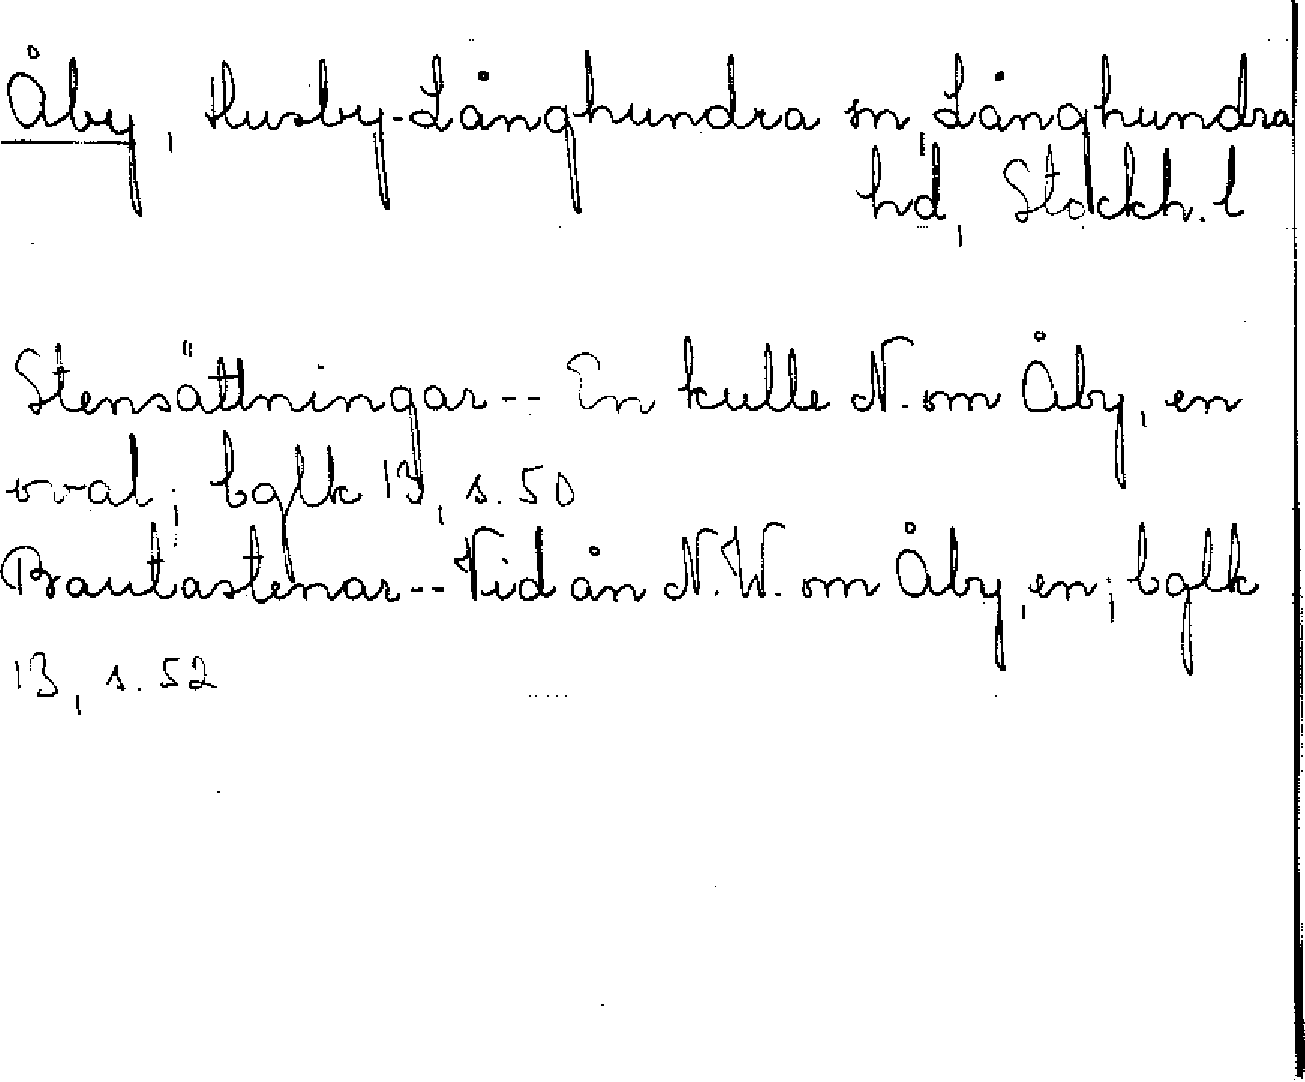 Åby, Husby-Långhundra sn, Långhundra
hd, Stockh. l
Stensättningar -- En kulle N. om Åby, en
oval; bglk 13, s. 50
Bautastenar -- Vid ån N.W. om Åby, en; bglk
13, s. 52